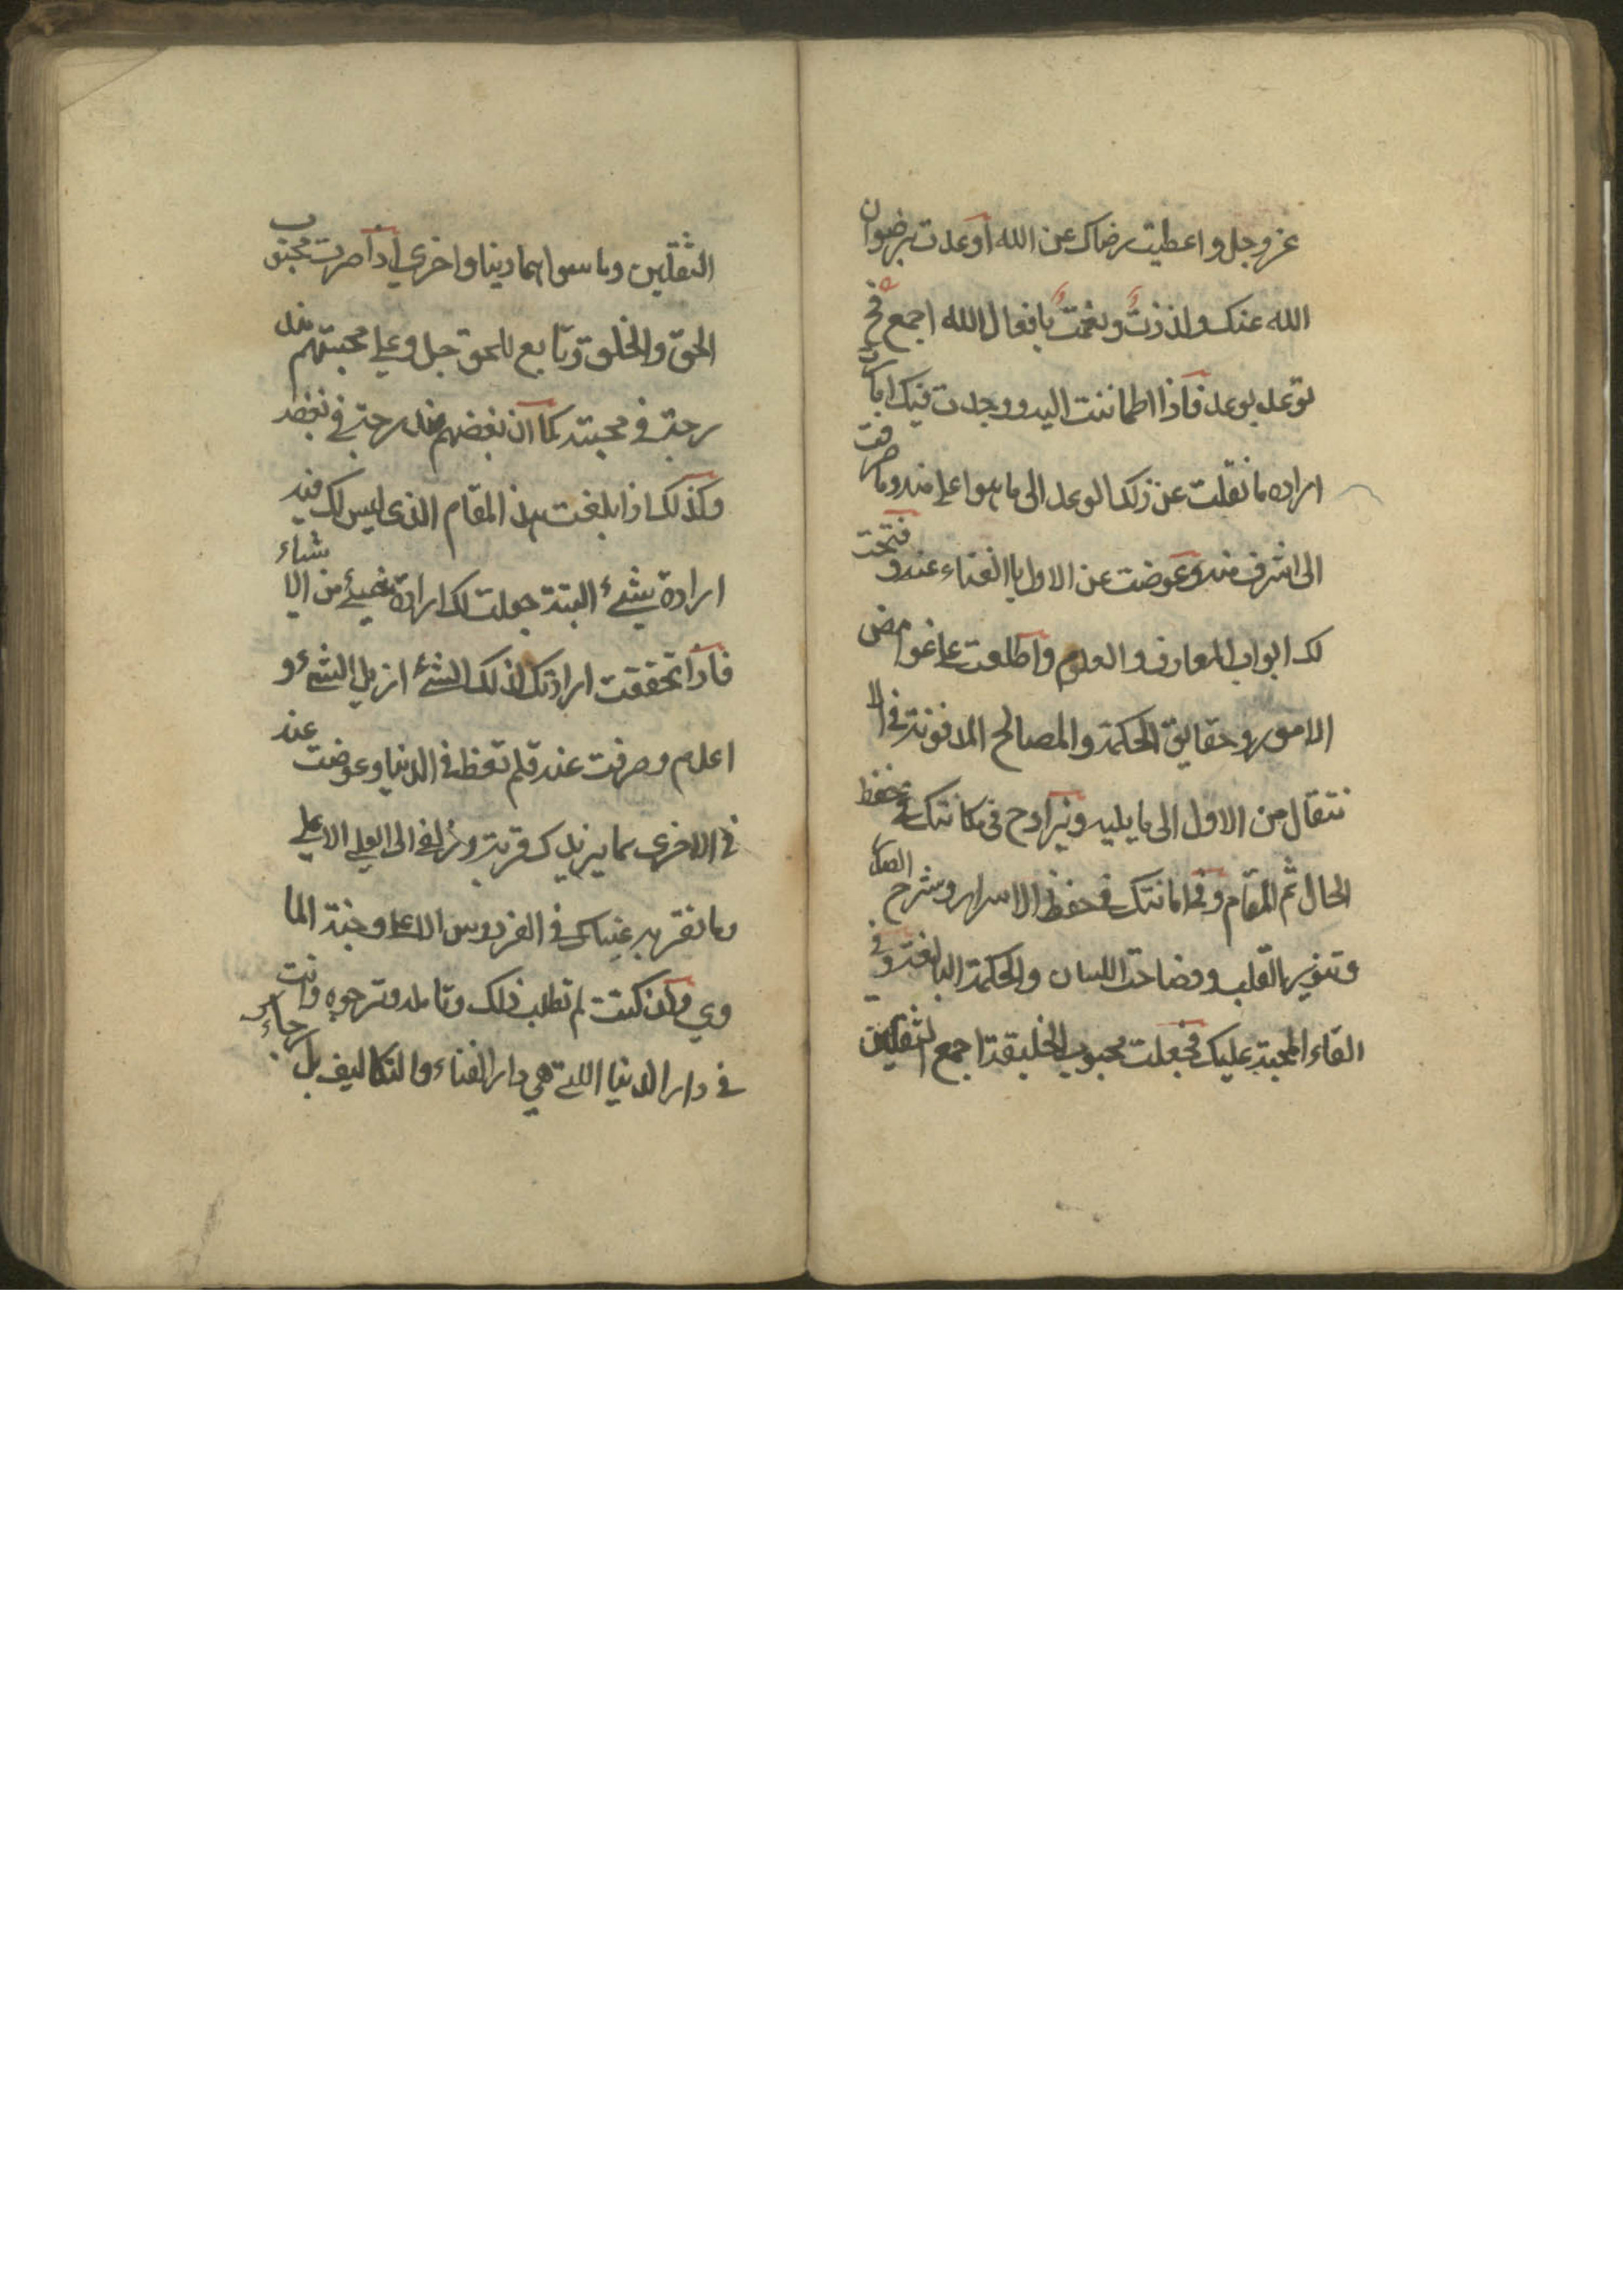 عز وجل واعطيت رضاك عن الله اوعدت برضوان
الله عنك ولذذت ونعمت بافعال الله اجمع فح
توعد بوعد فاذا اطماننت اليه ووجدت فيك امارة
اراده ما نقلت عن ذلك الوعد الى ما هو اعلى منه وصرفت
الى اشرف منه وعوضت عن الاول باالغناء عنه وفتحت
لك ابواب المعارف والعلوم واطلعت على غوامض
الامور وحقايق الحكمة والمصالح المدفونة في الا
نتقال من الاول الى ما يليه ويزاد ح في مكانتك في حفظ
الحال ثم المقام وفي امانتك في حفظ الاسرار وشرح الصدر
وتنوير القلب وفصاحة اللسان والحكمة البالغة وفي
القاء المحبة عليك فجعلت محبوب الخليقة اجمع الثقلين
الثقلين وما سواهما دينا واخرى اذا صرت محبوب
الحق والخلق تابع للحق جل وعلى محبتهم مند
رجة في محبته كما ان بغضهم مندرجة في بغضه
وكذلك اذا بلغت هذ المقام الذى ليس لك فيه
ارادة بشئ البتة جعلت لك ارادة لشئ من الاشياء
فاذا تحققت ارادتك لذلك الشئ ازيل الشئ و
اعدم وصرفت عنه فلم تعط في الدنيا وعوضت عنه
في الاخرى بما يزيدك قربة وزلفى الى العلى الاعلى
وما تقر به عيناك في الفردوس الاعلى وجنة الما
وي وان كنت لم تطلب ذلك وتامله وترجوه وانت
في دار الدنيا اللتي هي دار الفناء والتكاليف بل رجاءك